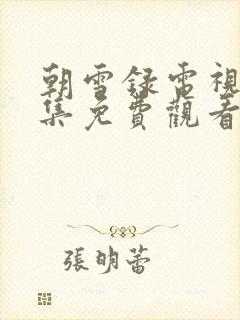 朝雪録電視
集免費觀看
張明蕾